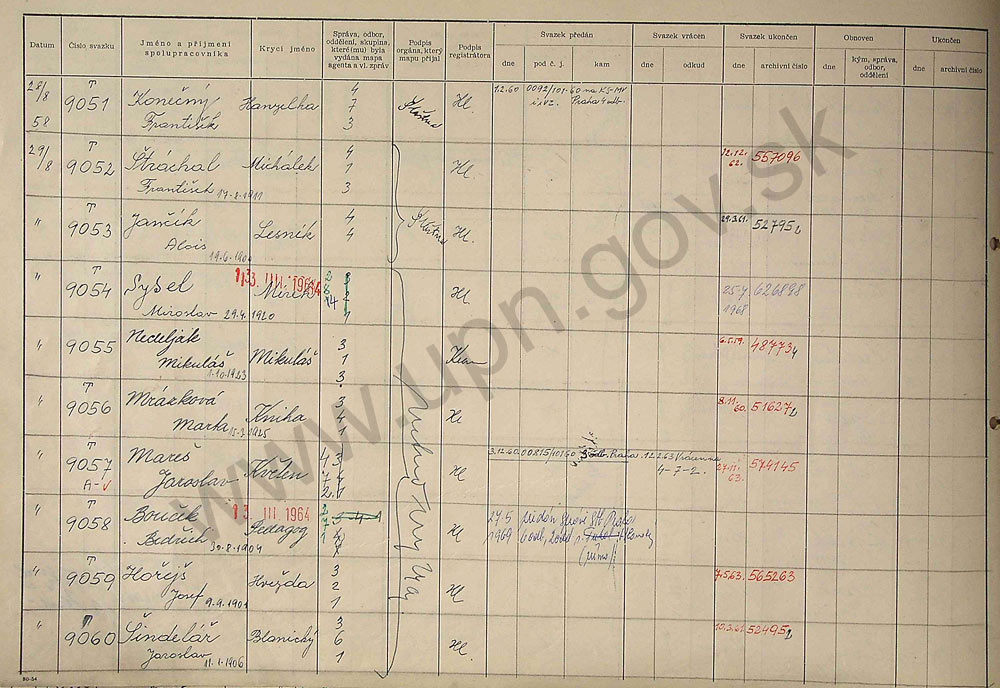 Datum
Číslo svazku
Jméno a příjmení
spolupracovníka
Krycí jméno
Správa, odbor,
oddělení, skupina,
které(mu) byla
vydána mapa
agenta a vl. zpráv
Podpis
orgána, který
mapu přijal
Podpis
registrátora
Svazek předán
dne
pod č. j.
kam
Svazek vrácen
dne
odkud
Svazek ukončen
dne
archivní číslo
Obnoven
dne
kým, správa,
odbor,
oddělení
Ukončen
dne
archivní číslo
28/8
58
T
9051
Konečný
František
Hanzelka
4
7
3
Hl.
1.2.60
0092/101-60 na KS-MV
Praha 4 odb.
29/8
T
9052
Štráchal
František
17-8-1911
Michálek
4
1
3
Hl.
12.12.
62.
557096
"
T
9053
Jančík
Alois
19.6.190
Lesník
4
4
Hl.
29.3.61.
52795
"
T
9054
Sysel
Miroslav 29.4.1920
13 III 1964
Mirek
2
8
14
3
2
1
Hl
25-7.
1968
626898
"
9055
Nedelják
Mikuláš
1.10.1923
Mikuláš
3
1
3.
6.5.59.
48773
"
T
9056
Mrázková
Marta
15-3-1925
Kniha
3
4
1
Hl
8.11.
60.
51627
"
T
9057
A-V
Mareš
Jaroslav
Květen
4 3
7 4
2. 1
Hl
3.12.60.
00815/101 60
Praha
12.2.63
4-7-2.
27.11.
63.
574145
"
T
9058
Bouček
Bedřich
30-8-1904
13 III 1964
Pedagog
2
7
1
3-4-1
Hl
27.5
1969
"
T
9059
Hořejš
Josef
9.9.1901
Hvězda
3
2
1
Hl
7.5.63.
565263
"
9060
Šindelář
Jaroslav
11.1.1906
Blanický
3
6
1
Hl.
10.3.61.
52495
www.upn.gov.sk